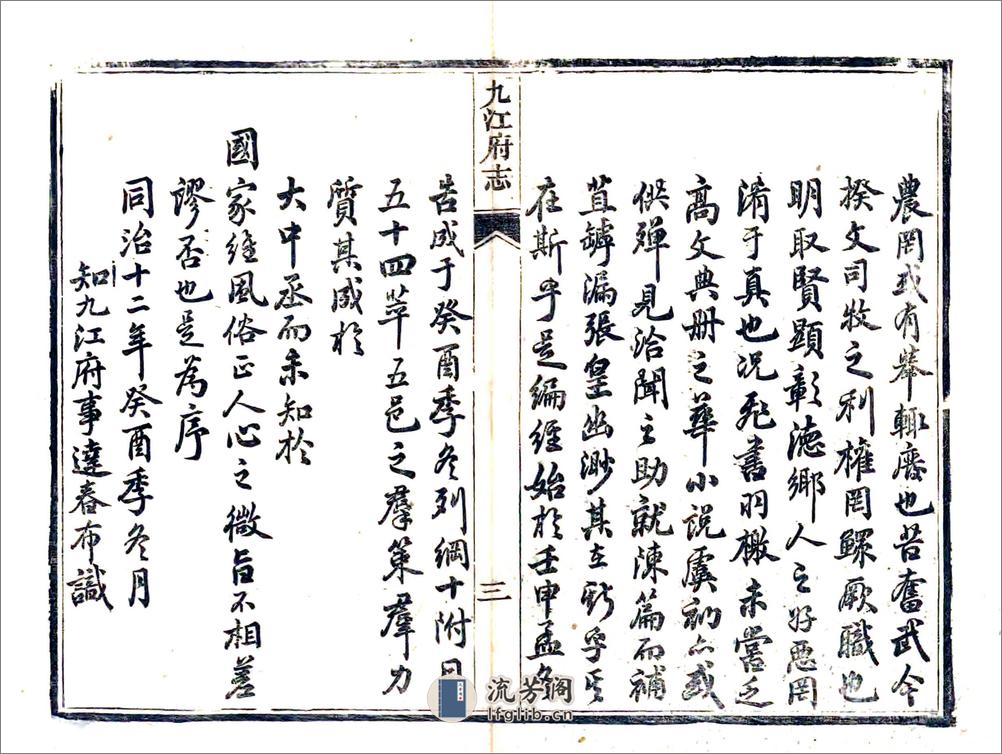 農罔或有舉輒廢也昔奮武今
揆文司牧之利權罔鰥厥職也
明取賢顯彰德鄉人之好惡罔
淆于真也況飛書羽檄未嘗乏
高文典冊之華小說虞初亦或
供殫見洽聞之助就湅篇而補
苴罅漏張皇幽渺其在斯乎其
在斯乎是編經始於壬申孟冬
九江府志
三
告成于癸酉季冬列綱十附目
五十四萃五邑之羣策羣力
質其成於
大中丞而未知於
國家維風俗正人心之微旨不相差
謬否也是為序
同治十二年癸酉季冬月
知九江府事達春布識
流芳閣
lfglib.cn